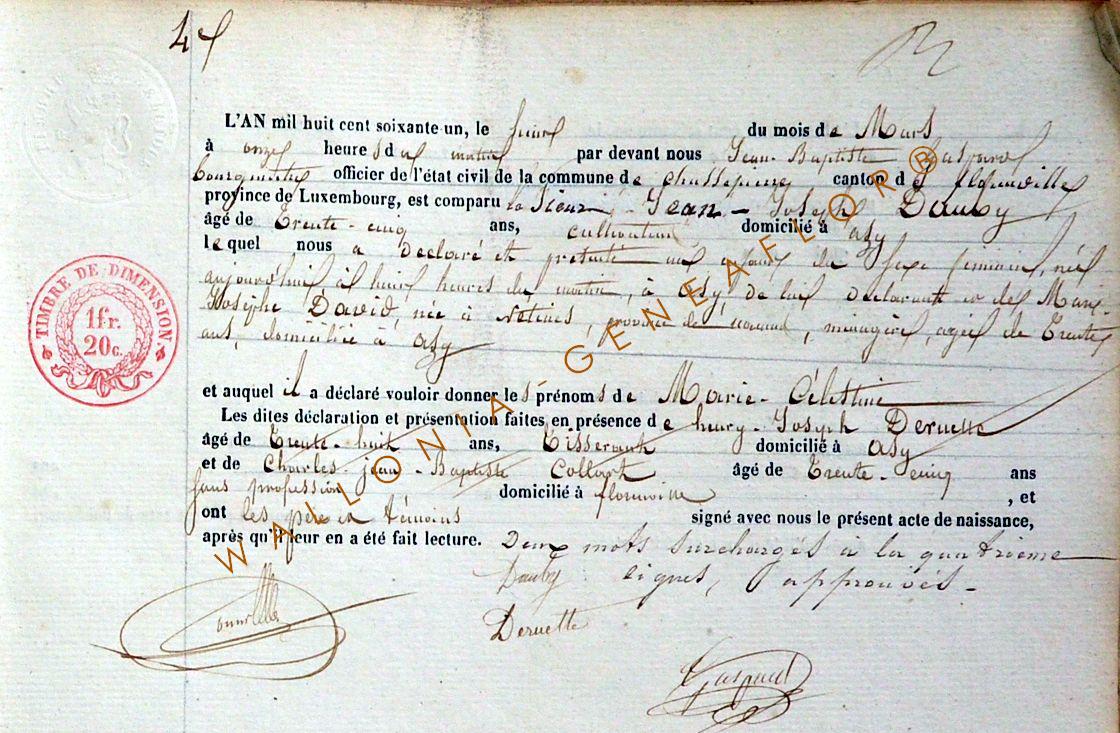 4
L'AN mil huit cent soixante un, le huit du mois de Mars
à onze heures du matin par devant nous Jean-Baptiste Gaspard
bourgmestre officier de l'état civil de la commune de Chassepierre canton de florenville
province de Luxembourg, est comparu le Sieur Jean-Joseph Dauby
âgé de Trente-cinq ans, cultivateur domicilié à asy
lequel nous a déclaré et présenté un enfant du sexe féminin, née
aujourd'hui, à huit heures du matin, à asy, de lui déclarant et de Marie
Josèphe David, née à province de namur, ménagère, agée de Trente
ans, domiciliée à asy
et auquel il a déclaré vouloir donner les prénoms de Marie-Célestine
Les dites déclaration et présentation faites en présence de henry-Joseph Deruette
âgé de Trente-huit ans, Tisserant domicilié à asy
et de Charles-jean-Baptiste Collart âgé de Trente-cinq ans
sans profession domicilié à florenville, et
ont les père et témoins signé avec nous le présent acte de naissance,
après qu'il leur en a été fait lecture. Deux mots surchargés à la quatrieme
Dauby lignes, approuvés.
Deruette
Gaspard
TIMBRE DE DIMENSION
1 fr.
20 c.
WALLONIA - GENEAFLORB